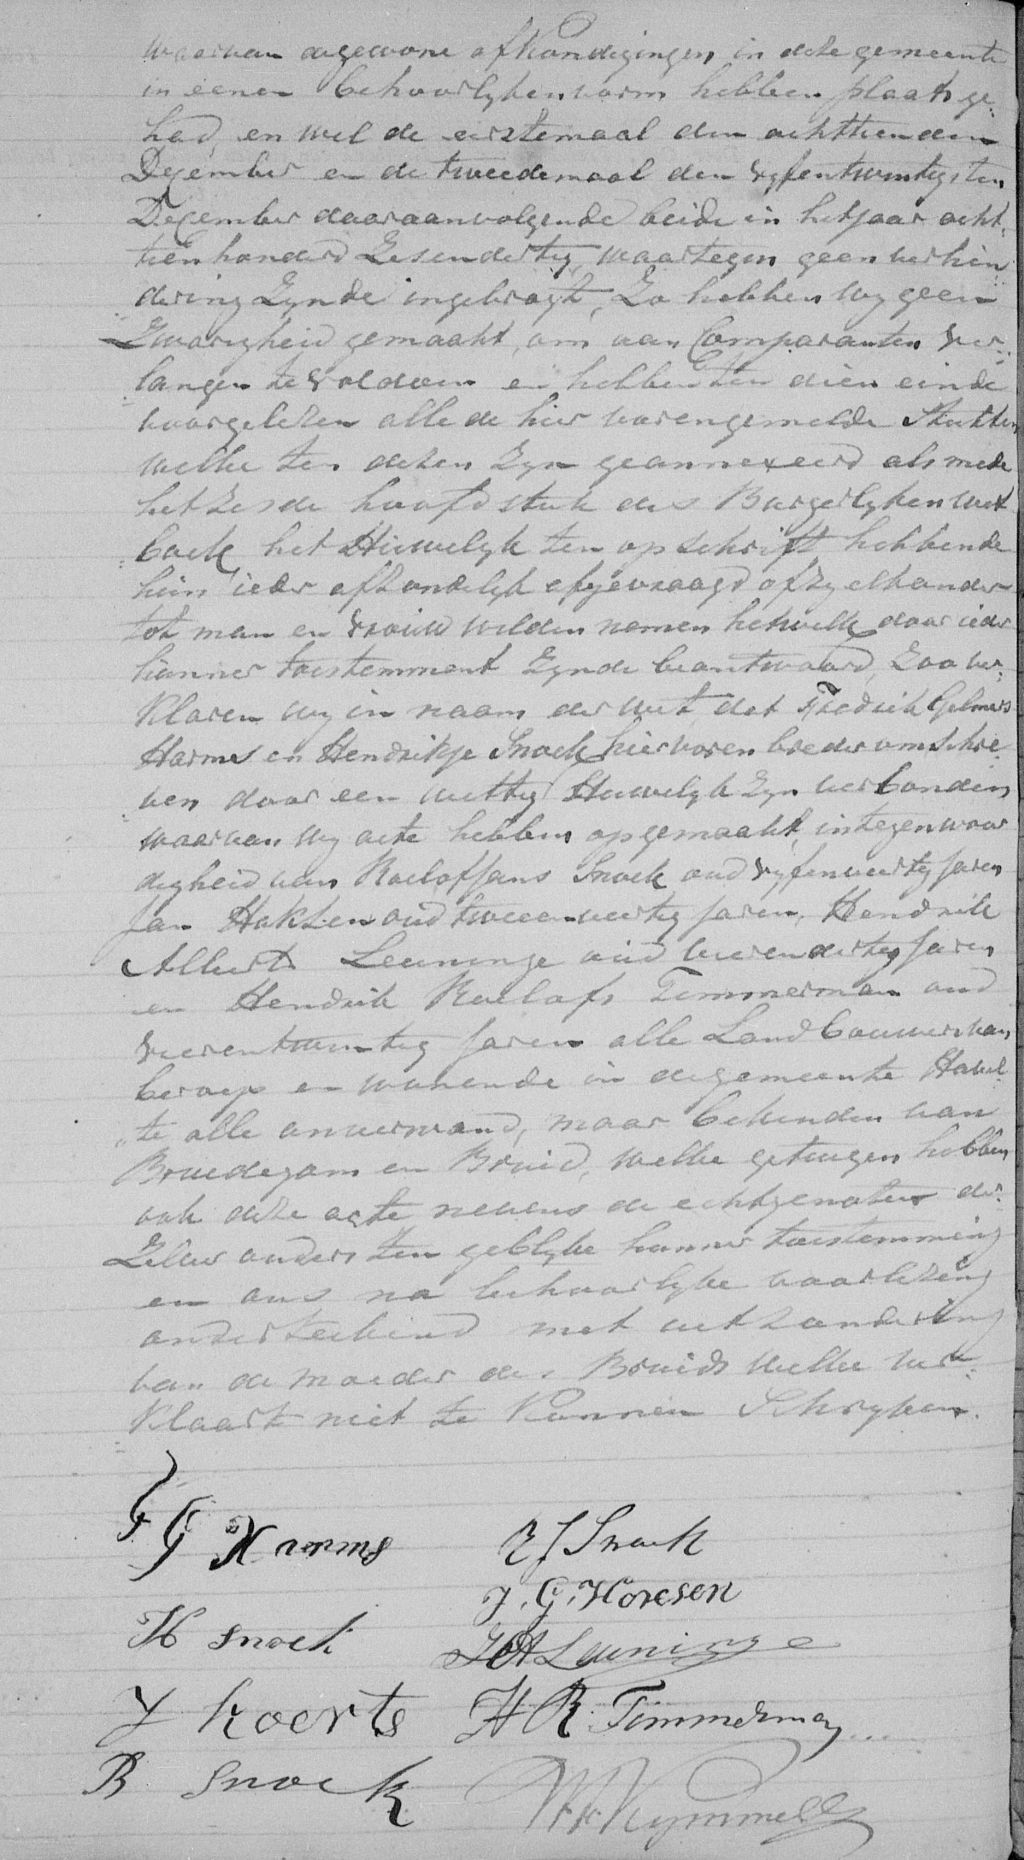 waarvan de gewone afkondigingen in deze gemeente
in eenen behoorlyken vorm hebben plaats ge„
had, en wel de eerstemaal den achttienden
December en de tweedemaal den vyfentwintigsten
December daaraanvolgende beide in het jaar acht„
tienhonderd Zesendertig, waartegen geen verhin
dering Zynde ingebragt, Zo hebben wy geen
Zwarigheid gemaakt, om aan Comparanten ver„
langen te voldoen en hebben ten dien einde
voorgelezen alle de hier vorengemelde Stukken
welke ten dezen Zyn geannexeerd als mede
het Zesde hoofdstuk des Burgerlyken wet
boek, het Huwelyk ten opschrift hebbende
hun ieder afzonderlyk afgevraagd of zy elkander
tot man en vrouw wilden nemen hetwelk door ieder
hunner toestemment Zynde beantwoord, Zoo ver„
klaren wy in naam der wet, dat Fredrik Gelmers
Harms en Hendrikje Snoek hiervoren breder omschre
ven door een wettig Huwelyk Zyn verbonden
waarvan wy acte hebben opgemaakt, in tegenwoor
digheid van Roelof Jans Snoek oud vyfenveertig Jaren
Jan Hoksen oud tweeenveertig Jaren, Hendrik
Alberts Leuninge oud vierendertig Jaren
en Hendrik Roelofs Timmerman oud
vierentwintig Jaren alle Landbouwers van
beroep en wonende in de gemeente Havel
te alle onverwand, maar bekenden van
Bruidegom en Bruid, welke getuigen hebben
ook deze acte nevens de echtgenoten der
Zelver ouders ten geblyke hunner toestemming
en ons na behoorlyke voorlezing
onderteekend met uitzondering
van de moeder der Bruid welke ver„
klaart niet te kunnen Schryven.
F G Harms
R J Snoek
J. G. Hoksen
H Snoek
H A Leuninge
J Koerts
H R Timmerman
R Snoek
Kymmell